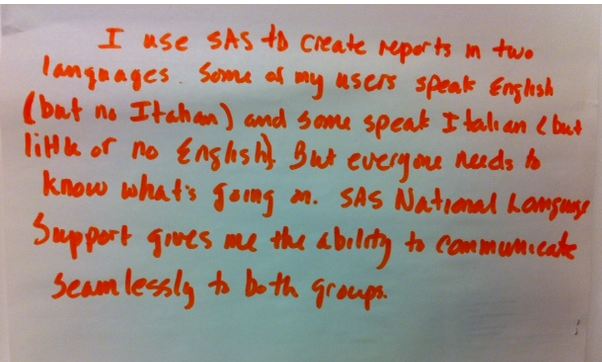 I use SAS to create reports in two
languages. Some of my users speak English
(but no Italian) and some speak Italian (but
little or no English). But everyone needs to
know what's going on. SAS National Language
Support gives me the ability to communicate
seamlessly to both groups.